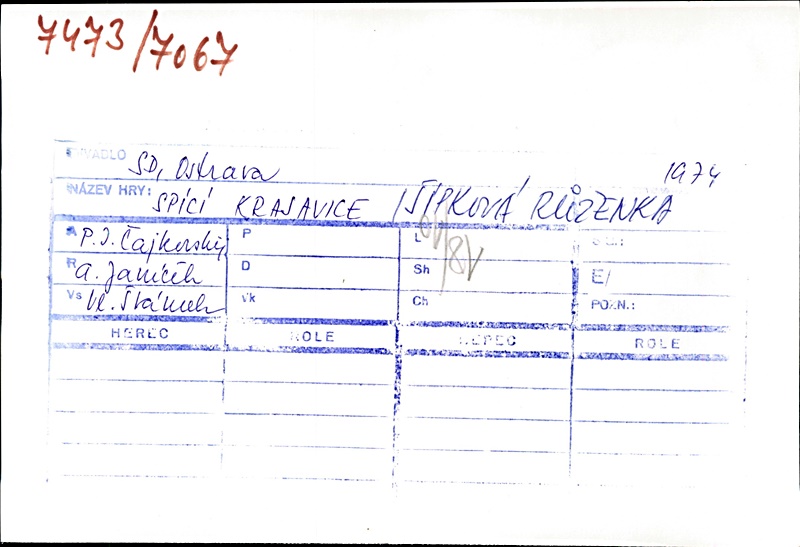 7473/7067
DIVADLO SD, Ostrava 1974
NÁZEV HRY: SPÍCÍ KRASAVICE /ŠÍPKOVÁ RŮŽENKA
A P.I. Čajkovskij P L
R A. Janíček D Sh E/
Vs Vl. Šrámek Vk Ch POZN.:
HEREC ROLE HEREC ROLE